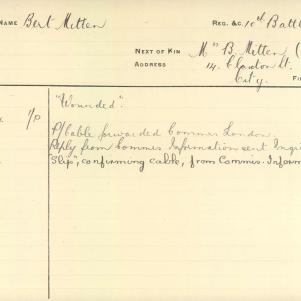 NAME Bert Mitten
REG. &C. 10th Batt
NEXT OF KIN Mrs B. Mitten (
ADDRESS 14. St.
City.
"Wounded".
P/Cable forwarded Commis London.
Reply from Commis Information sent
Slip", confirming cable, from Commis. Inform